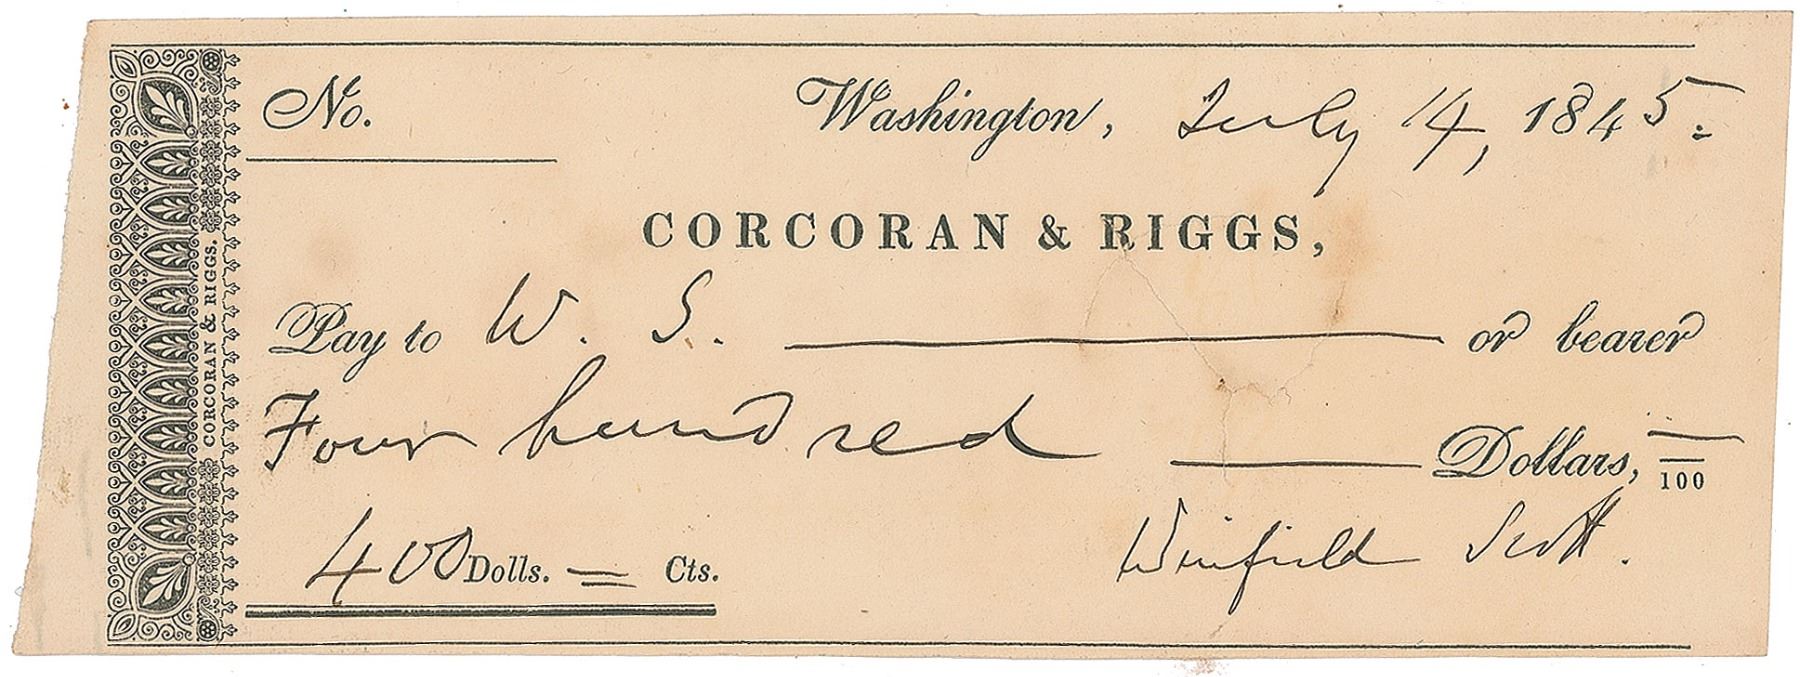 No. Washington, July 14, 1845.
CORCORAN & RIGGS,
Pay to W. S. or bearer
Four hundred Dollars, —/100
400 Dolls. = Cts.
Winfield Scott.
CORCORAN & RIGGS.